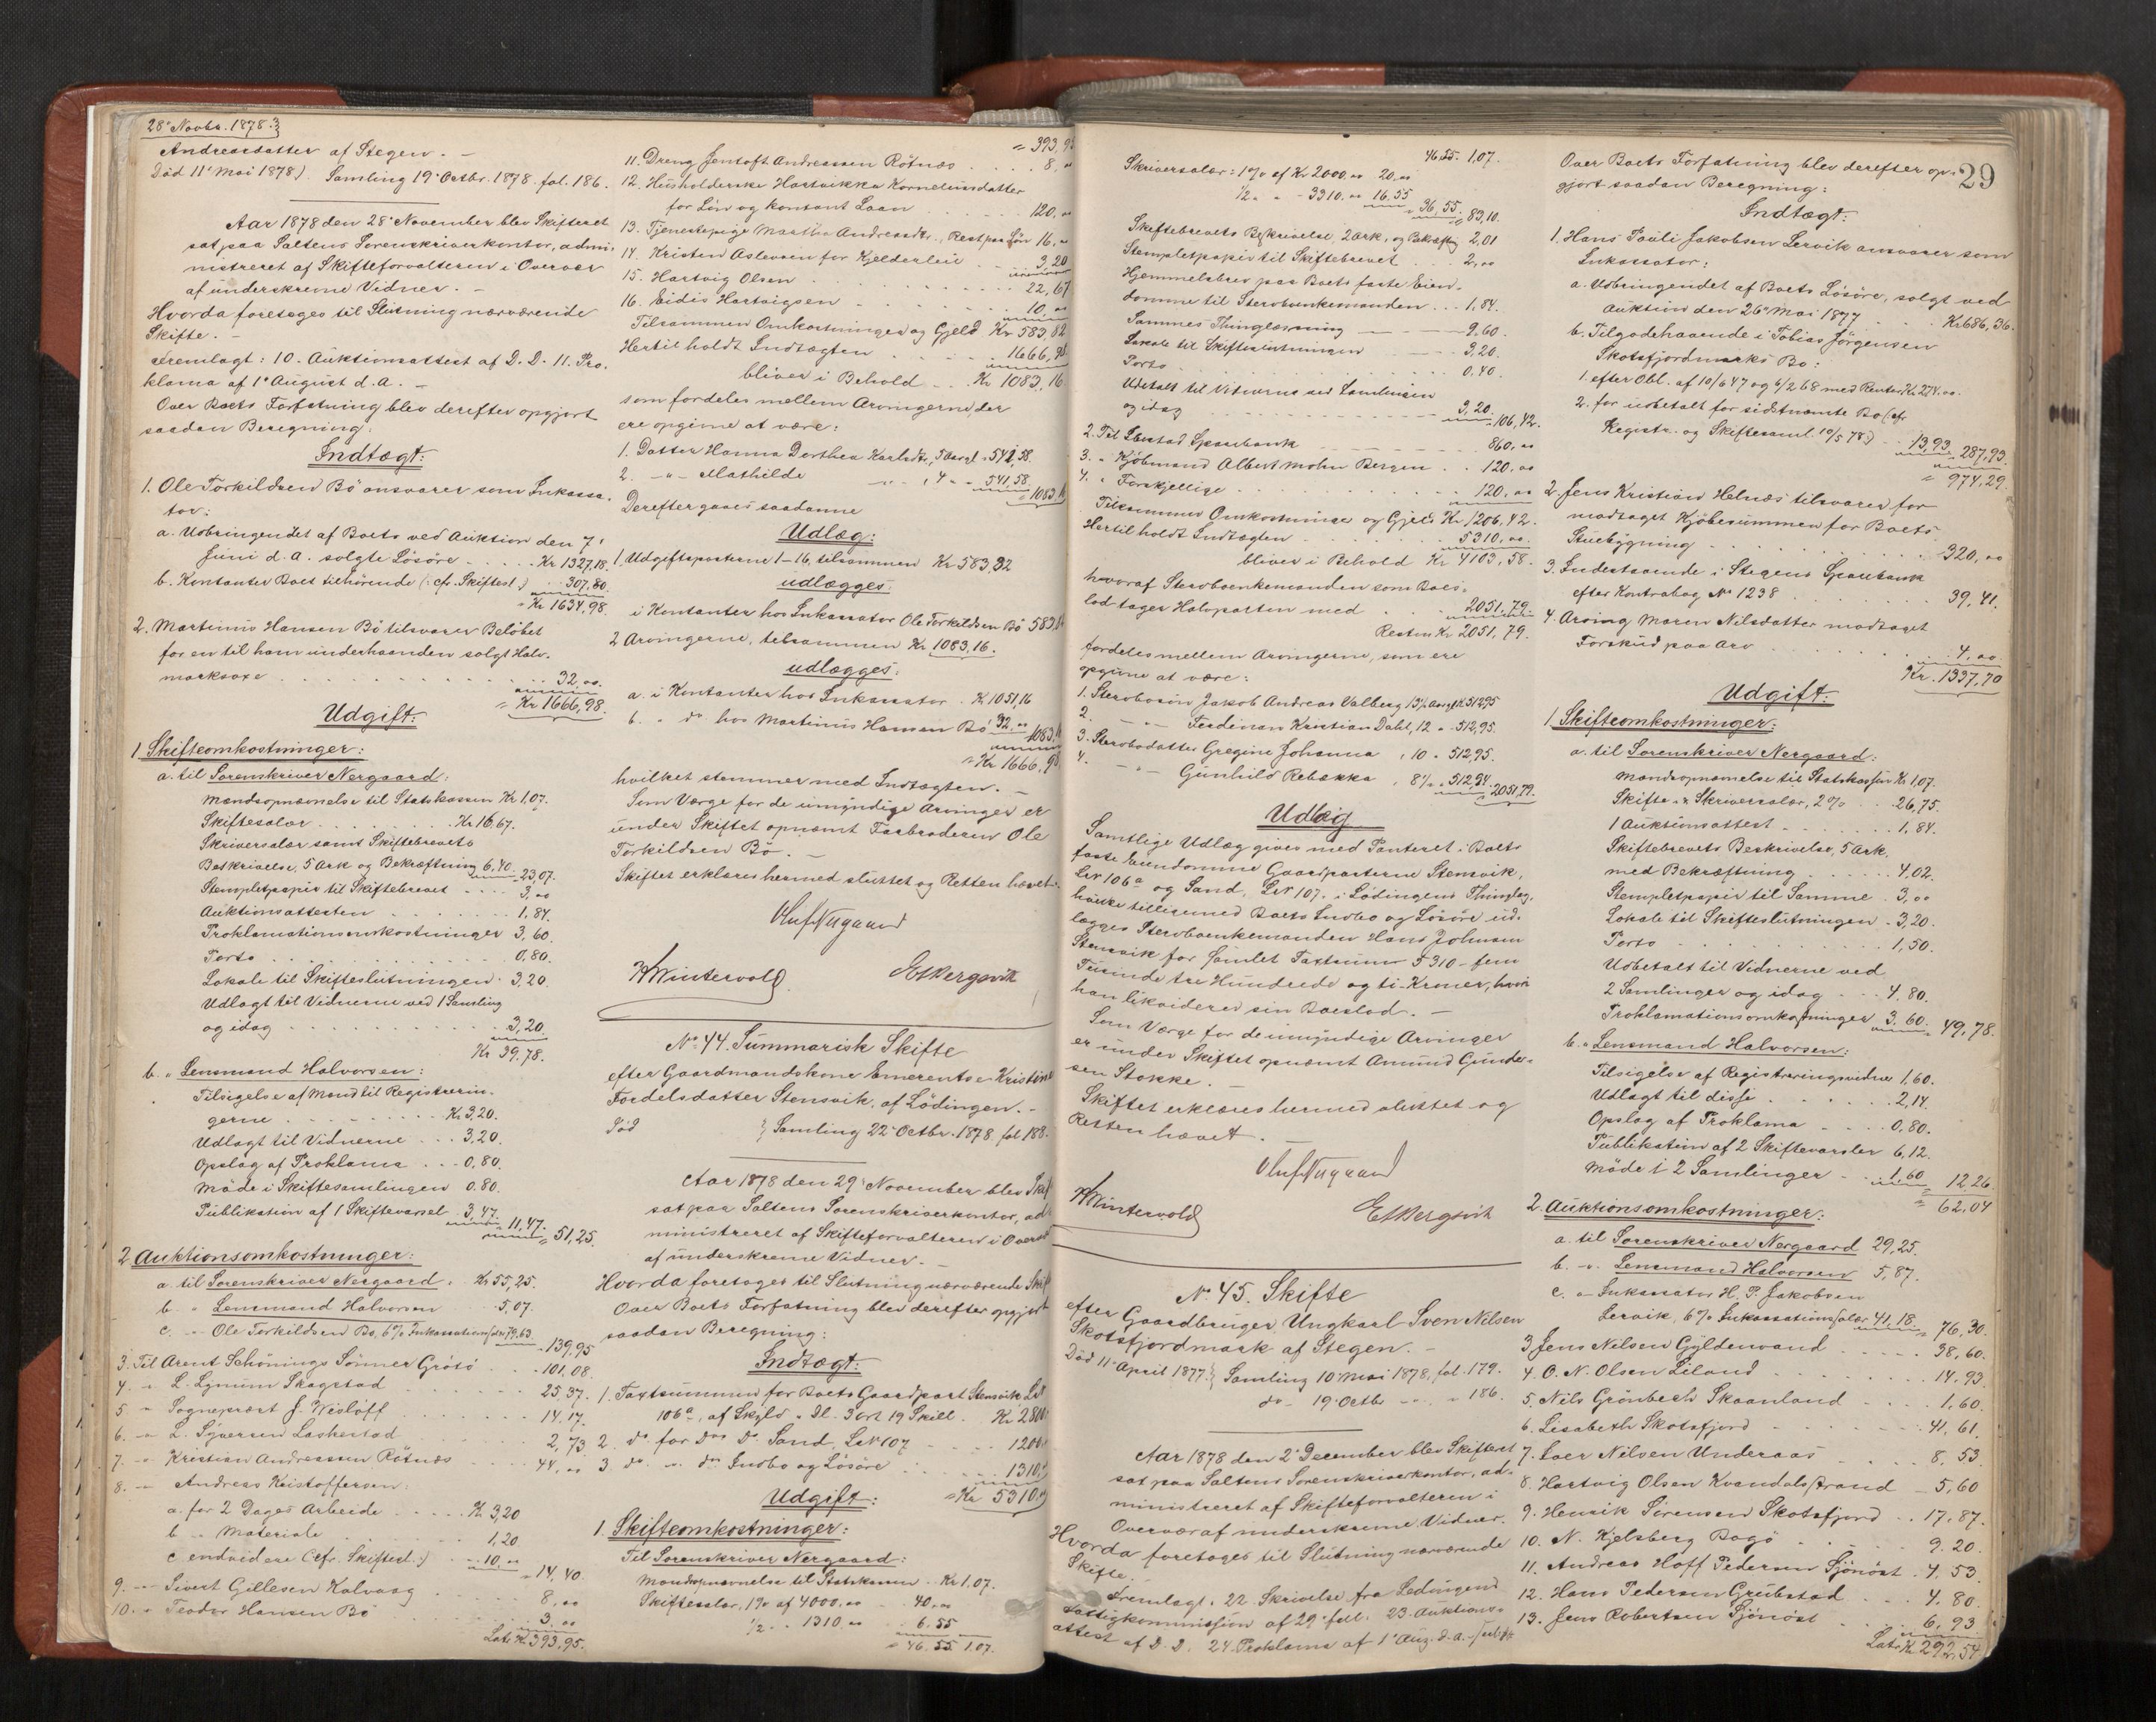 28de Novbr. 1878.
Andreasdatter af Stegen. –
Död 11te Mai 1878). Samling 19de Octbr. 1878. fol. 186.
Aar 1878 den 28de November blev Skifteret
sat paa Saltens Sorenskriverkontor, admi-
nistreret af Skifteforvalteren i Overvær
af underskrevne Vidner. –
Hvorda foretoges til Slutning nærværende
Skifte. –
Fremlagt: 10. Auktionsattest af D. D. 11. Pro-
klama af 1ste August d. A. –
Over Boets Forfatning blev derefter opgjort
saadan Beregning:
Indtægt:
1. Ole Torkildsen Bö ansvarer som Inkassa-
tor:
a. Udbringendet af Boets ved Auktion den 7de
Juni d. A. solgte Lösöre . . . . Kr 1327,18.
b. Kontanter Boet tilhörende (: cfr. Skiftesl.) . 307,80.
" Kr 1634,98.
2. Martinus Hansen Bö tilsvarer Belöbet
for en til ham underhaanden solgt Halv-
marksoxe . . . . 32,00.
" Kr 1666,98.
Udgift:
1 Skifteomkostninger:
a. til Sorenskriver Nergaard:
Mandsopnævnelse til Statskassen Kr 1,07.
Skiftesalær . . . . Kr 16,67.
Skriversalær samt Skiftebrevets
Beskrivelse, 5 Ark og Bekræftning 6,40. 23,07.
Stempletpapir til Skiftebrevet . . . . 3,00
Auktionsattesten . . . . 1,84.
Proklamationsomkostninger 3,60.
Porto . . . . 0,80.
Lokale til Skifteslutningen . 3,20.
Udlagt til Vidnerne ved 1 Samling
og idag . . . . 3,20.
Kr 39,78.
b. " Lensmand Halvorsen:
Tilsigelse af Mænd til Registrerin-
gerne . . . . Kr 3,20.
Udlagt til Vidnerne . . . 3,20.
Opslag af Proklama . . . 0,80.
Möde i Skiftesamlingen 0.80.
Publikation af 1 Skiftevarsel . 3,47.
11,47. " 51,25.
2 Auktionsomkostninger:
a. til Sorenskriver Nergaard . Kr 55,25.
b. " Lensmand Halvorsen . 5,07.
c. " Ole Torkildsen Bö, 6% Inkassationssalær 79,63.
" 139,95
3. Til Arent Schönings Sönner Grötö . . 101,08.
4. " L. Lynum Skagstad . . . . 25,37.
5. " Sogneprest J. Wislöff . . . . 14,17.
6. " L. Syversen Laskestad . . . . 2,73.
7. " Kristian Andreassen Rötnæs . . . . 44,00
8. " Andreas Kristoffersen:
a. for 2 Dages Arbeide . . . . Kr. 3,20
b. " Materiale . . . . 1,20
c. endvidere (cfr. Skiftesl.) . . 10,00
" 14,40.
9. " Sivert Gillesen Kalvaag . . . . 8,00
10. " Teodor Hansen Bö . . . . 3,00
Lats Kr 393,95.
" 393,95
11. Dreng Jentoft Andreassen Rötnæs . . . . 8,00
12. Husholderske Hartvikka Korneliusdatter
for Lön og kontant Laan . . . . 120,00
13. Tjenestepige Martha Andreasdtr., Rest paa Lön 16,00
14. Kristen Aslevsen for Kjelderleie . . 3,20
15. Hartvig Olsen . . . . 22,67
16. Eidis Hartvigsen . . . . 10,00
Tilsammen Omkostninger og Gjeld Kr 583,82
Hertil holdt Indtægten . . . . 1666,98
bliver i Behold . . Kr 1083,16.
som fordeles mellem Arvingerne der
ere opgivne at være:
1. Datter Hanna Dorthea Karlsdtr, 5 Aar gl " 541,58.
2. " Mathilde " 4 " " 541,58.
" 1083,16
Derefter gaaes saadanne
Udlæg:
1. Udgiftsposterne 1–16, tilsammen Kr 583,82
udlægges:
i Kontanter hos Inkassator Ole Torkildsen Bö 583,82
2 Arvingerne, tilsammen Kr 1083,16.
udlægges:
a. i Kontanter hos Inkassator . Kr 1051,16
b. " do hos Martinus Hansen Bö 32,00 1083,16
" Kr 1666,98
hvilket stemmer med Indtægten. –
Som Værge for de umyndige Arvinger er
under Skiftet opnævnt Farbroderen Ole
Torkildsen Bö. –
Skiftet erklæres hermed sluttet og Retten hævet. –
Oluf Nergaard
H Wintervold. E Bergsvik
No 44. Summarisk Skifte
efter Gaardmandskone Emerentse Kristine
Fordelsdatter Stensvik, af Lödingen. –
Död } Samling 22de Octbr. 1878. fol 188.
Aar 1878 den 29de November blev Skif
sat paa Saltens Sorenskriverkontor, ad
ministreret af Skifteforvalteren i Overvæ
af underskrevne Vidner. –
Hvorda foretoges til Slutning nærværende Skif
Over Boets Forfatning blev derefter opgjort
saadan Beregning:
Indtægt:
1. Taxtsummen for Boets Gaardpart Stensvik LN
106a, af Skyld " Dl. 3 ort 19 Skill. Kr 2800
2. do for Dos Do Sand, LN 107 . . . 1200
3. do " dos Indbo og Lösöre . . . 1310,
" Kr 5310,
Udgift:
1. Skifteomkostninger:
Til Sorenskriver Nergaard:
Mandsopnævnelse til Statskassen . Kr 1,07.
Skiftesalær, 1% af 4000,00 . . 40,00
1/2 " " 1310,00 . . 6,55
" 46,55. 1,07.
46,55. 1,07.
Skriversalær: 1% af Kr 2000,00 20,00
1/2 " " – 3310,00 16,55
" 36,55. " 83,10.
Skiftebrevets Beskrivelse, 2 Ark, og Bekræftng 2,01
Stempletpapir til Skiftebrevet . . . 2,00
Hjemmelsbrev paa Boets faste Eien-
domme til Stervboenkemanden . . . 1,84.
Sammes Thinglæsning . . . 9,60.
Lokale til Skifteslutningen . . . 3,20.
Porto . . . . 0,40.
Udbetalt til Vidnerne ved Samlingen
og idag . . . . 3,20. " 106,42.
2. Til Ibestad Sparebank . . . . 860,00
3. " Kjöbmand Albert Mohn Bergen . . 120,00
4. " Forskjellige . . . . 120,00
Tilsammen Omkostninger og Gjeld Kr 1206,42.
Hertil holdt Indtægten . . . . 5310,00.
bliver i Behold Kr 4103,58.
hvoraf Stervboenkemanden som Boes-
lod tager Halvparten med . . . . 2051,79.
Resten Kr 2051,79.
fordeles mellem Arvingerne, som ere
opgivne at være:
1. Stervbosön Jakob Andreas Valberg 13 1/2 Aar gl. Kr 512,95
2. " " Ferdinan Kristian Dahl, 12 " . 512,95.
3. Stervbodatter Gregine Johanna , 10 " 512,95.
4. " " Gunhild Rebekka , 8 1/2 " 512,94. " 2051,79.
Udlæg
Samtlige Udlæg gives med Panteret i Boets
faste Eiendomme Gaardparterne Stensvik,
LN 106a og Sand, LN 107. i Lödingens Thinglag,
hvilke tilligemed Boets Indbo og Lösöre ud-
lægges Stervboenkemanden Hans Johnsen
Stensvik for samlet Taxtsum 5310 – fem
Tusinde tre Hundrede og ti – Kroner, hvori
han likviderer sin Boeslod. –
Som Værge for de umyndige Arvinger
er under Skiftet opnævnt Amund Gunder-
sen Stokke. –
Skiftet erklæres hermed sluttet og
Retten hævet. –
Oluf Nergaard
H Wintervold E Bergsvik
No 45. Skifte
efter Gaardbruger Ungkarl Sven Nilsen
Skotsfjordmark af Stegen. –
Död 11te April 1877. } Samling 10de Mai 1878, fol. 179.
do 19de Octbr " . " 186.
Aar 1878 den 2den December blev Skifteret
sat paa Saltens Sorenskriverkontor, ad-
ministreret af Skifteforvalteren i
Overvær af underskrevne Vidner.
Hvorda foretoges til Slutning nærværende
Skifte. –
Fremlagt: 22. Skrivelse fra Ledingens
Fattigkommission af 29de Juli. 23. Auktions-
attest af D. D. 24. Proklama af 1ste Aug. d. A. –
29
Over Boets Forfatning blev derefter op-
gjort saadan Beregning:
Indtægt:
1. Hans Pauli Jakobsen Lervik ansvarer som
Inkassator:
a. Udbringendet af Boets Lösöre, solgt ved
Auktion den 26de Mai 1877 . . Kr 686,36.
b. Tilgodehavende i Tobias Jörgensen
Skotsfjordmarks Bo:
1. efter Obl. af 10/6 47 og 6/2 68 med Renter Kr 274,00.
2. for udbetalt for sidstnævnte Bo (cfr.
Registr. og Skiftesaml. 10/5 78.) . . 13,93. 287,93.
" 974,29.
2. Jens Kristian Helnæs tilsvarer for
modtaget Kjöbesummen for Boets
Stuebygning . . . . 320,00
3. Indestaaende i Stegens Sparebank
efter Kontrabog No 1238 . . . . 39,41.
4. Arving Maren Nilsdatter modtaget
Forskud paa Arv . . . . 4,00.
Kr. 1337,70
Udgift:
1 Skifteomkostninger:
a. til Sorenskriver Nergaard:
Mandsopnævnelse til Statskassen Kr 1,07.
Skifte- & Skriversalær, 2% . . 26,75.
1 Auktionsattest . . . . 1,84.
Skiftebrevets Beskrivelse, 5 Ark,
med Bekræftning . . . . 4,02.
Stempletpapir til Samme . 3,00
Lokale til Skifteslutningen . 3,20.
Porto . . . . 1,50.
Udbetalt til Vidnerne ved
2 Samlinger og idag . . . 4,80.
Proklamationsomkostninger 3,60. " 49,78.
b. " Lensmand Halvorsen:
Tilsigelse af Registreringsvidner 1,60.
Udlagt til disse . . . . 2,14.
Opslag af Proklama . . . . 0,80.
Publikation af 2 Skiftevarsler 6,12.
Möde i 2 Samlinger . . . 1,60 " 12.26
" 62,04
2. Auktionsomkostninger:
a. til Sorenskriver Nergaard 29,25.
b. " Lensmand Halvorsen 5,87.
c. " Inkassator H. P. Jakobsen
Lervik, 6% Inkassationssalær 41,18. " 76,30.
3 Jens Nilsen Gyldenvand . . . . 38,60.
4. O. N. Olsen Liland . . . . 14,93.
5. Nils Grönbech Skaanland . . . . 1,60.
6. Lisabeth Skotsfjord . . . . 41,61.
7. Iver Nilsen Underaas . . . . 8,53.
8. Hartvig Olsen Kvandalstrand – 5,60
9. Henrik Sörensen Skotsfjord . . 17,87.
10. N. Kjelsberg Bogö . . . . 9.20.
11. Andreas Hoff Pedersen Sjönöst . 4,53.
12. Hans Pedersen Grubstad . . . 4.80.
13. Jens Robertsen Sjönöst . . . 6,93.
Lats Kr. 292,54.